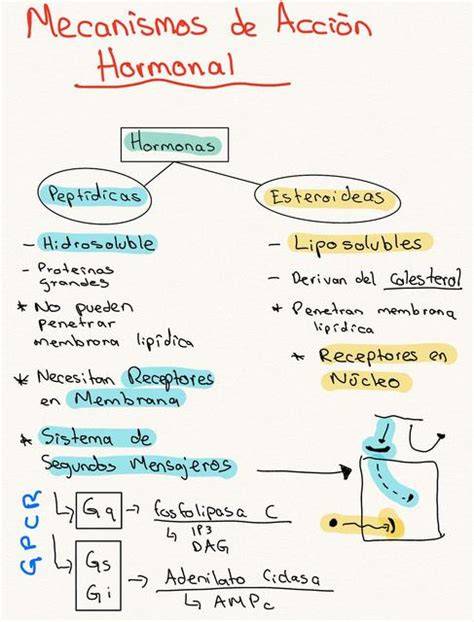 Mecanismos de Acción
Hormonal
Hormonas
Peptídicas
- Hidrosoluble
- Proteinas
grandes
* No pueden
penetrar
membrana lipídica
* Necesitan Receptores
en Membrana
* Sistema de
Segundos Mensajeros
GPCR
↳ Gq → fosfolipasa C
↳ IP3
DAG
↳ Gs
Gi → Adenilato Ciclasa
↳ AMPc
Esteroideas
- Liposolubles
- Derivan del Colesterol
* Penetran membrana
lipídica
* Receptores en
Núcleo